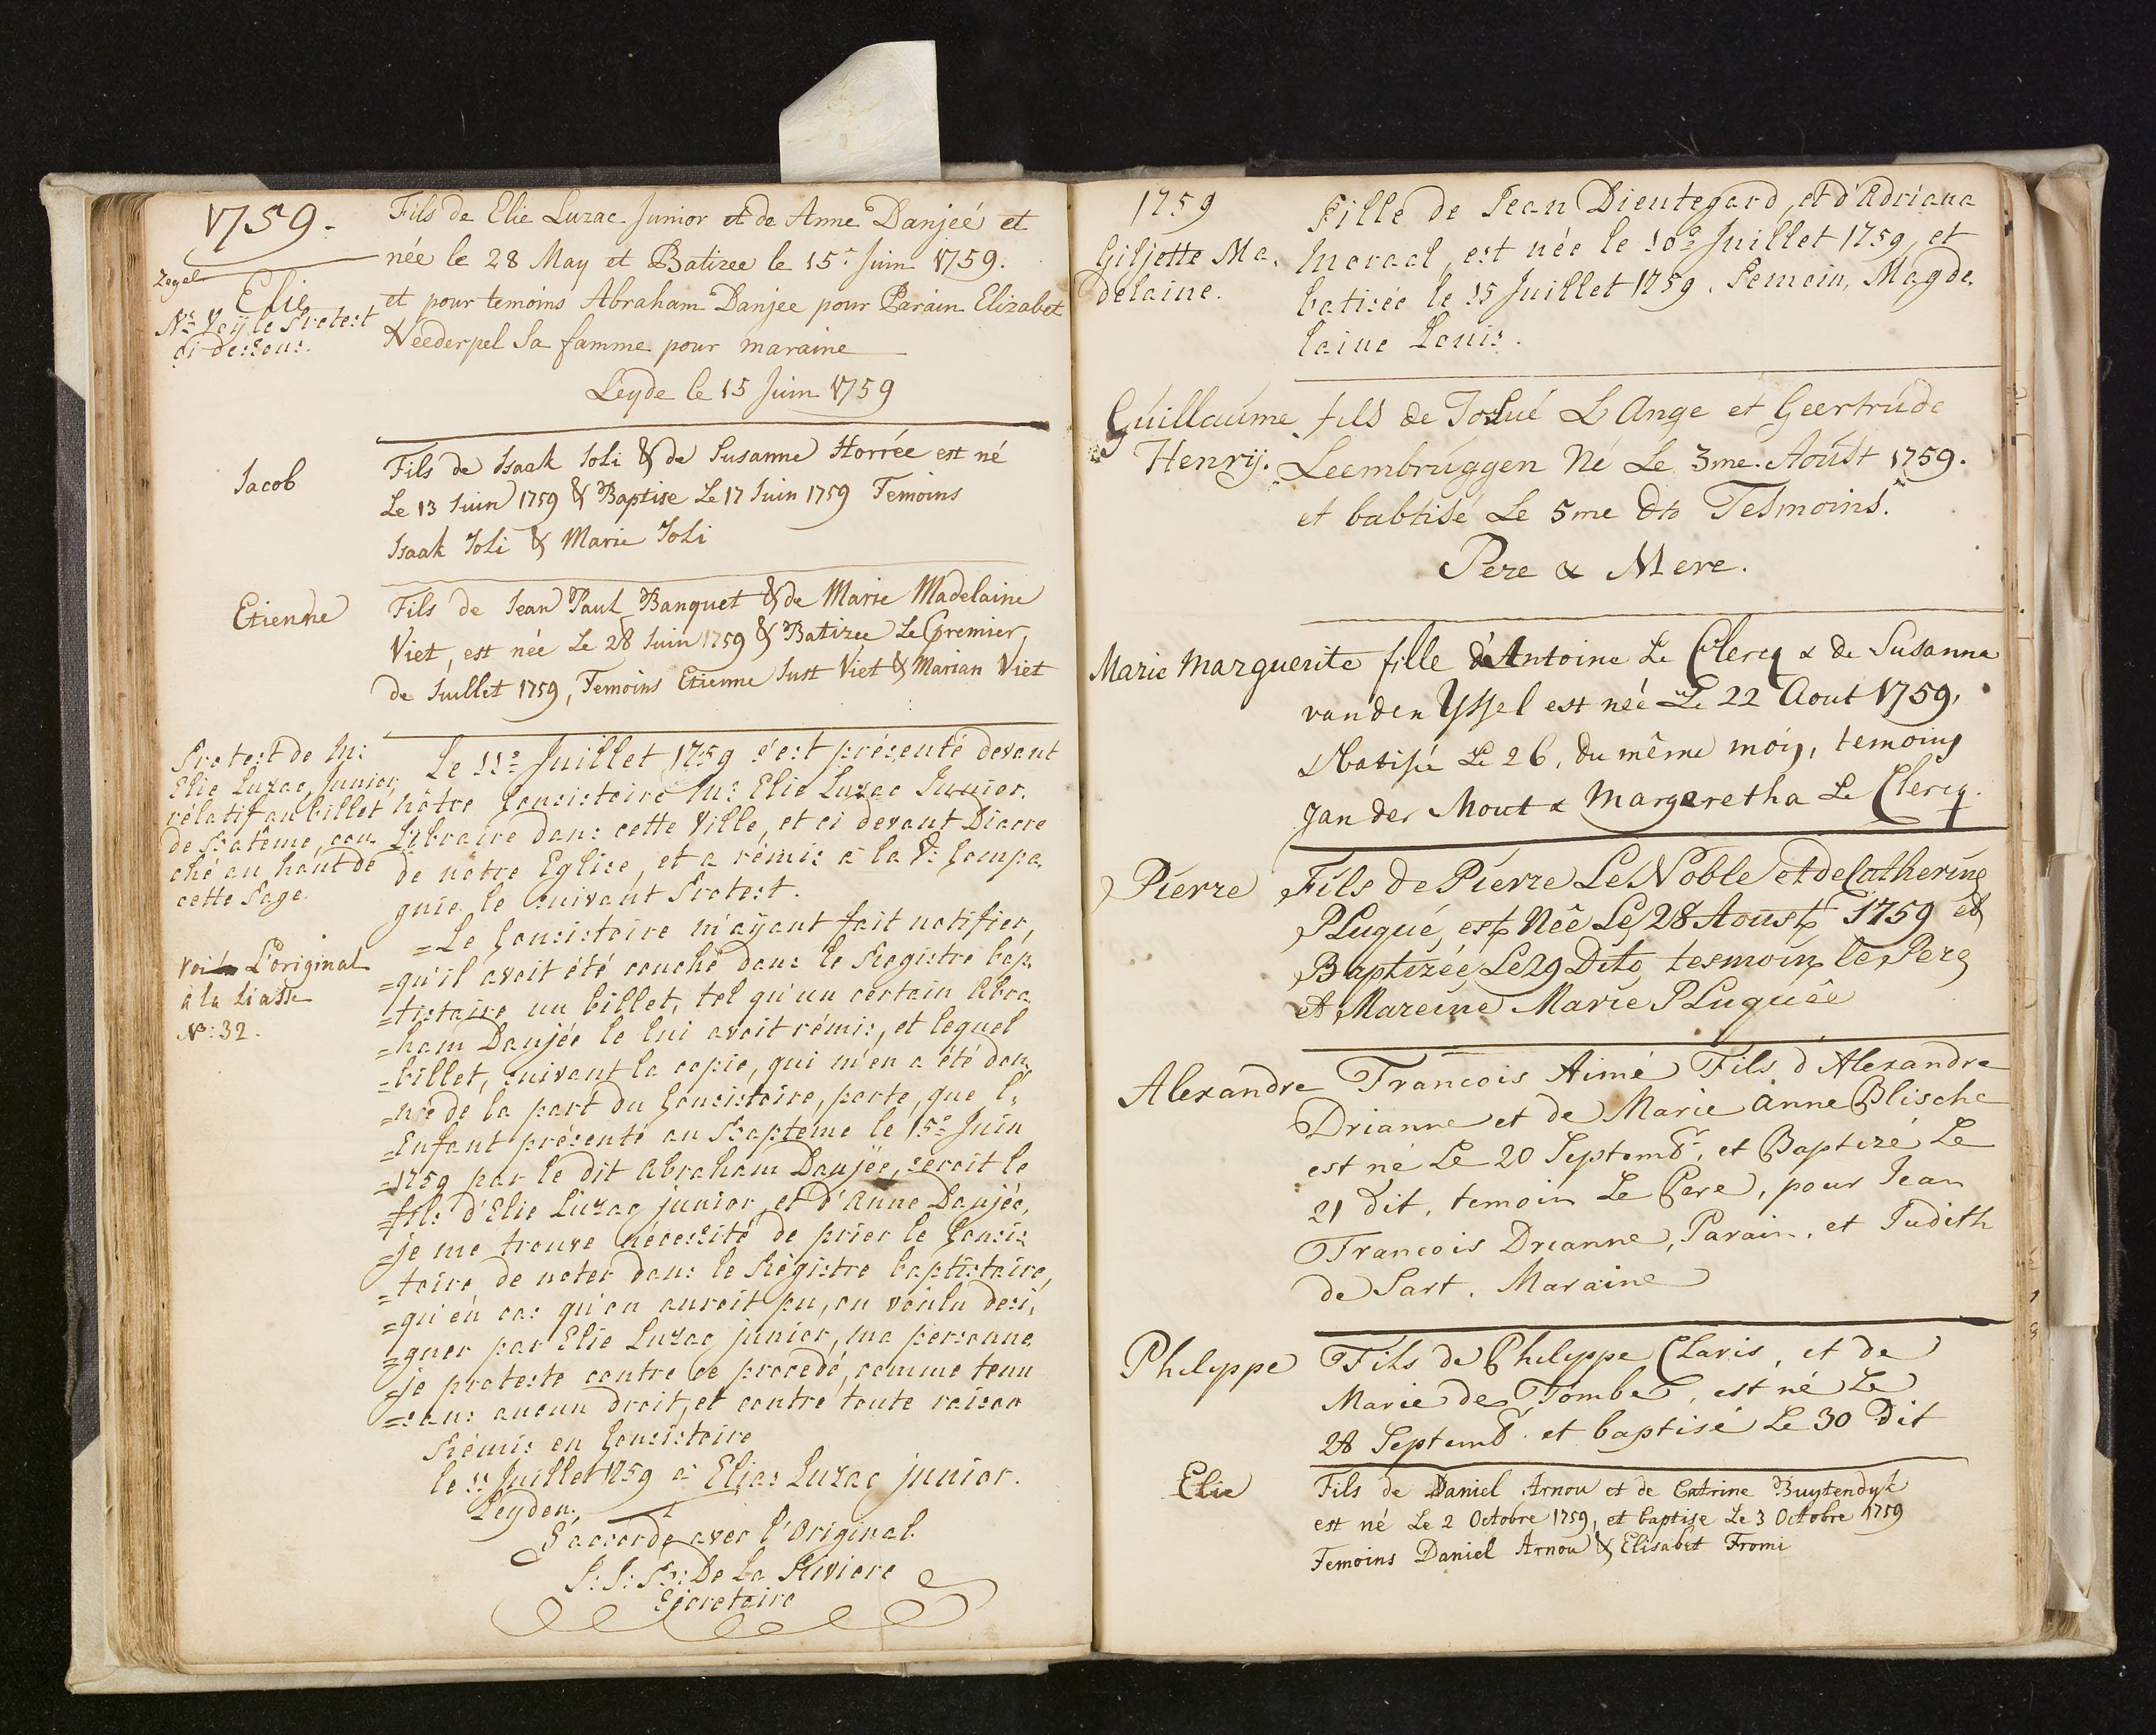 1759.
Zegel
Elie
NB. Voÿ le Protest
ci-dessous.
Fils de Elie Luzac Junior et de Anne Danjeé et
née le 28 May et Batizee le 15e Juin 1759.
et pour temoins Abraham Danjee pour Parain Elizabet
Neederpel sa famme pour maraine
Leyde le 15 Juin 1759
Jacob
Fils de Isaak Joli & de Susanne Horrée est né
Le 13 Juin 1759 & Baptise Le 17 Juin 1759 Temoins
Isaak Joli & Marie Joli
Etienne
Fils de Jean Paul Banquet & de Marie Madelaine
Viet, est née Le 28 Juin 1759 & Batizee Le premier
de Juillet 1759, Temoins Etienne Just Viet & Marian Viet
Protest de Mr:
Elie Luzac, Junior,
rélatif au billet
de Batême, cou-
ché au haut de
cette Page.
Voi L'original
à la liasse
No: 32.
Le 11e Juillet 1759 s'est présenté devant
nôtre Consistoire Mr: Elie Luzac Junior.
Libraire dans cette Ville, et ci devant Diacre
de notre Eglise, et a rémis à la Ve: Compa-
gnie le suivant Protest.
=Le Consistoire m'aÿant fait notifier,
=qu'il avoit été couché dans le Registre bap-
=tistaire un billet, tel qu'un certain Abra-
=ham Danjée le lui avoit rémis, et lequel
=billet, suivant la copie, qui m'en a été don-
=née de la part du Consistoire, porte, que l'-
=Enfant présenté au Baptême le 15e Juin
=1759 par le dit Abraham Danjée, seroit le
=fils d'Elie Luzac junior, et d'Anne Danjée,
=je me trouve nécessité de prier le Consis-
=toire, de noter dans le Régistre baptistaire,
=qu'en cas qu'on auroit pu, ou voulu desi-
=gner par Elie Luzac junior, ma personne
=je proteste contre ce procedé, comme tenu
=sans aucun droit, et contre toute raison
Rémis en Consistoire
le 11 Juillet 1759 à Elias Luzac junior.
Leyden.
S'accorde avec l'Original.
J: J: Br: De La Riviere
Sécretaire
1759
Giljette Ma-
delaine.
Fille de Jean Dieutegard, et d'Adriana
Moraal, est née le 10e Juillet 1759, et
batisée le 15 Juillet 1759. Temoin, Magde-
laine Louis.
Guillaume
Henrÿ.
fils de Josué L'Ange et Geertrude
Leembruggen Né Le 3me. Aoust 1759.
et babtisé Le 5me dto Tesmoins.
Pere & Mere.
Marie Marguerite fille d'Antoine Le Clercq & de Susanna
vanden Yssel est née Le 22 Aout 1759,
& Batisée Le 26. du même mois, temoins
Jan der Mout & Margaretha Le Clercq.
Pierre
Fils de Pierre Le Noble et de Catherine
PLuqué, est Née Le 28 Aoust 1759 et
Baptizée Le 29 Dito, tesmoin le Pere
et Mareine Marie PLuquêe
Alexandre Francois Aimé Fils d'Alexandre
Drianne et de Marie Anne Blische
est né Le 20 Septembr. et Baptizé Le
21 Dit, temoin Le Pere, pour Jean
Francois Drianne, Parain, et Judith
de Sart. Maraine
Philippe
Fils de Philippe Claris, et de
Marie de Tombe, est né Le
28 Septembr. et baptisé Le 30 Dit
Elie
Fils de Daniel Arnou et de Catrine Buytendyk
est né Le 2 Octobre 1759, et baptise Le 3 Octobre 1759
Temoins Daniel Arnou & Elisabet Fromi